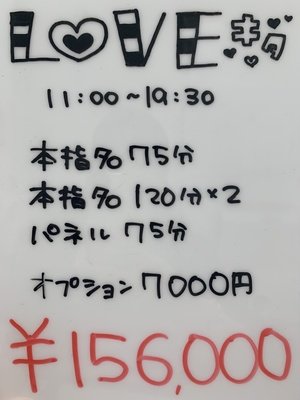 LOVE
11:00~19:30
本指名 75分
本指名 120分×2
パネル 75分
オプション 7000円
¥156,000